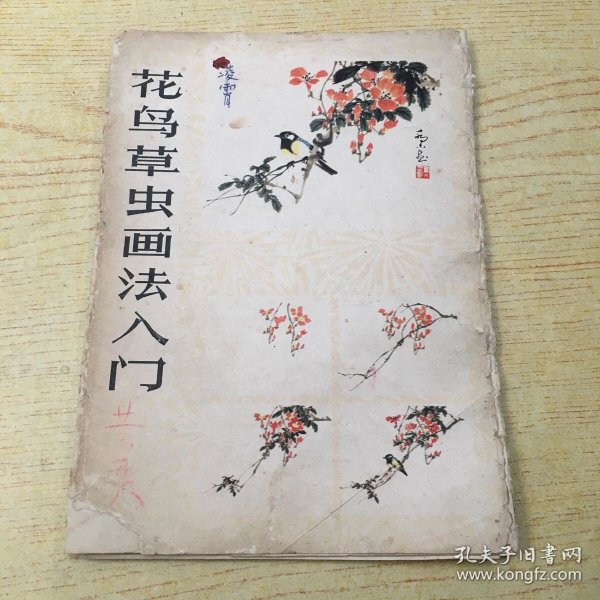 花鸟草虫画法入门
凌霄
孔夫子旧书网
www.kongfz.com